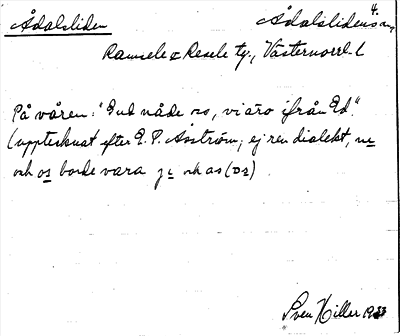 Ådalsliden Ådalslidens
4.
Ramsele & Resele tg., Västernorrl. l
På våren: "Gud nåde os, vi äro ifrån Ed"
(upptecknat efter E. P. Åsström; ej ren dialekt,
och os borde vara och as (os)
Sven Hiller 1933